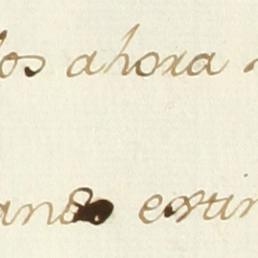 los ahora
ando extin